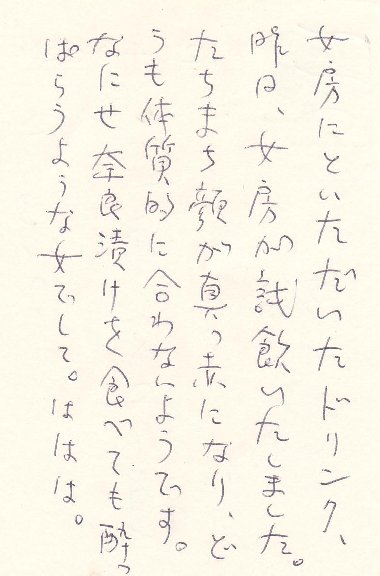 女房にといただいたドリンク、
昨日、女房が試飲いたしました。
たちまち顔が真っ赤になり、ど
うも体質的に合わないようです。
なにせ奈良漬けを食べても酔っ
ぱらうような女でして。ははは。